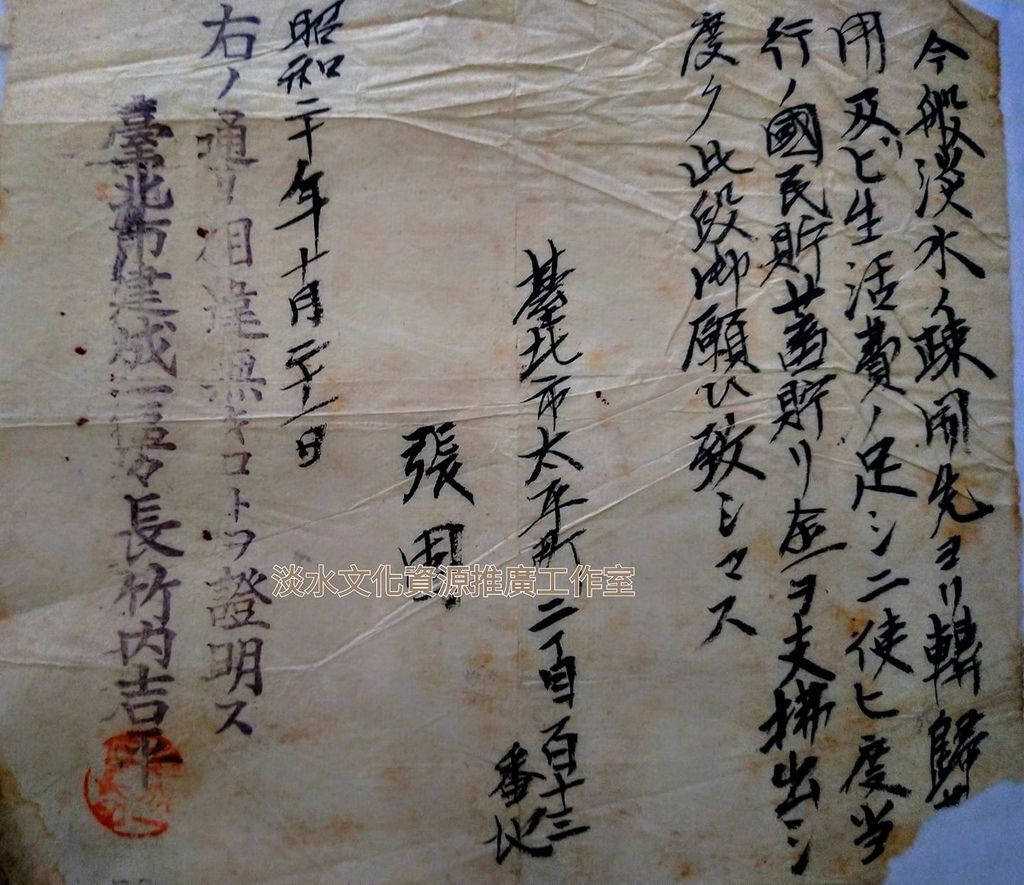 今般淡水ノ疎開先ヨリ轉歸
用及ビ生活費ノ足シニ使ヒ度当
行ノ國民貯蓄貯リ金ヲ支拂出シ
度ク此段御願ヒ致シマス
臺北市太平町二丁目百十三
番地
張
昭和二十年十月二十一日
右ノ通リ相違無キコトヲ證明ス
臺北市建成一區長竹内吉平
淡水文化資源推廣工作室